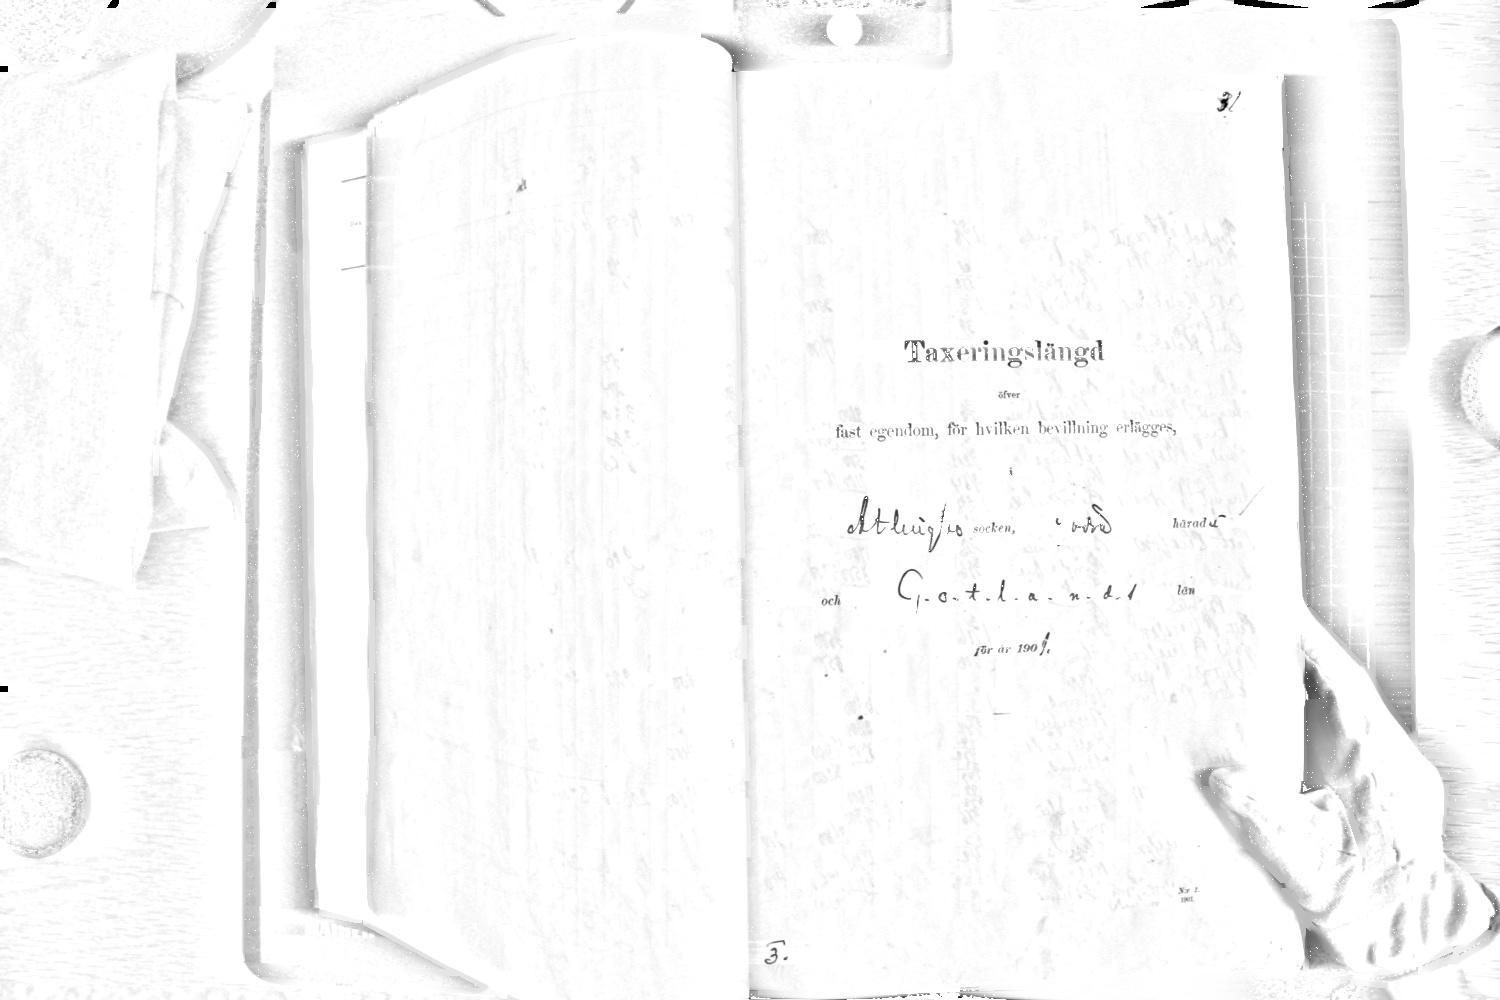 31
Taxeringslängd
öfver
fast egendom, för hvilken bevillning erlägges,
i
Atlingbo socken, häradet
och G.o.t.l.a.n.d.s län
för år 190
N:r 1.
1901.
3.